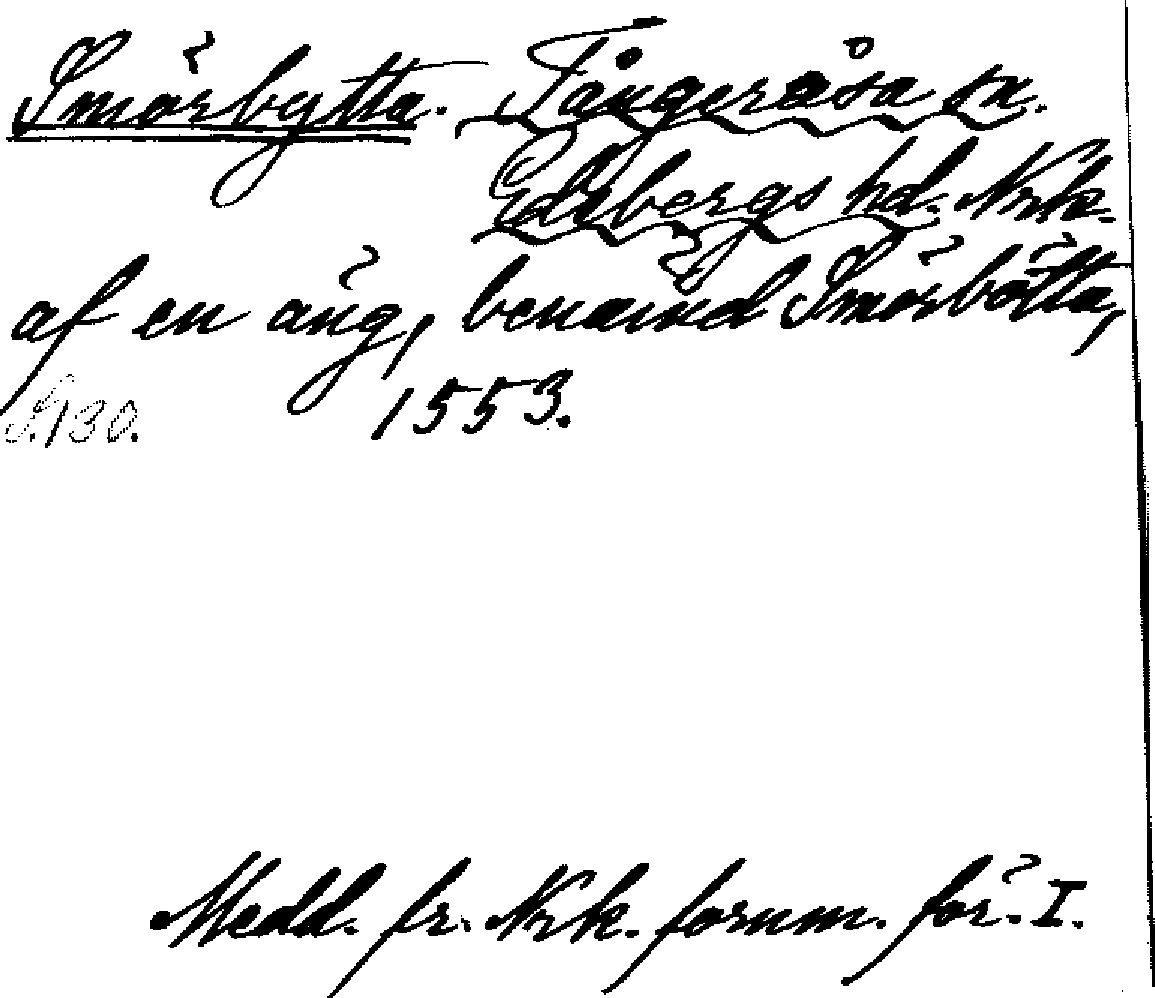 Smörbytta. Tångeråsa sn.
Edsbergs hd. Nrk.
af en äng, benämd Smörbötta,
S. 130. 1553.
Medd. fr. Nrk. fornm. för. I.